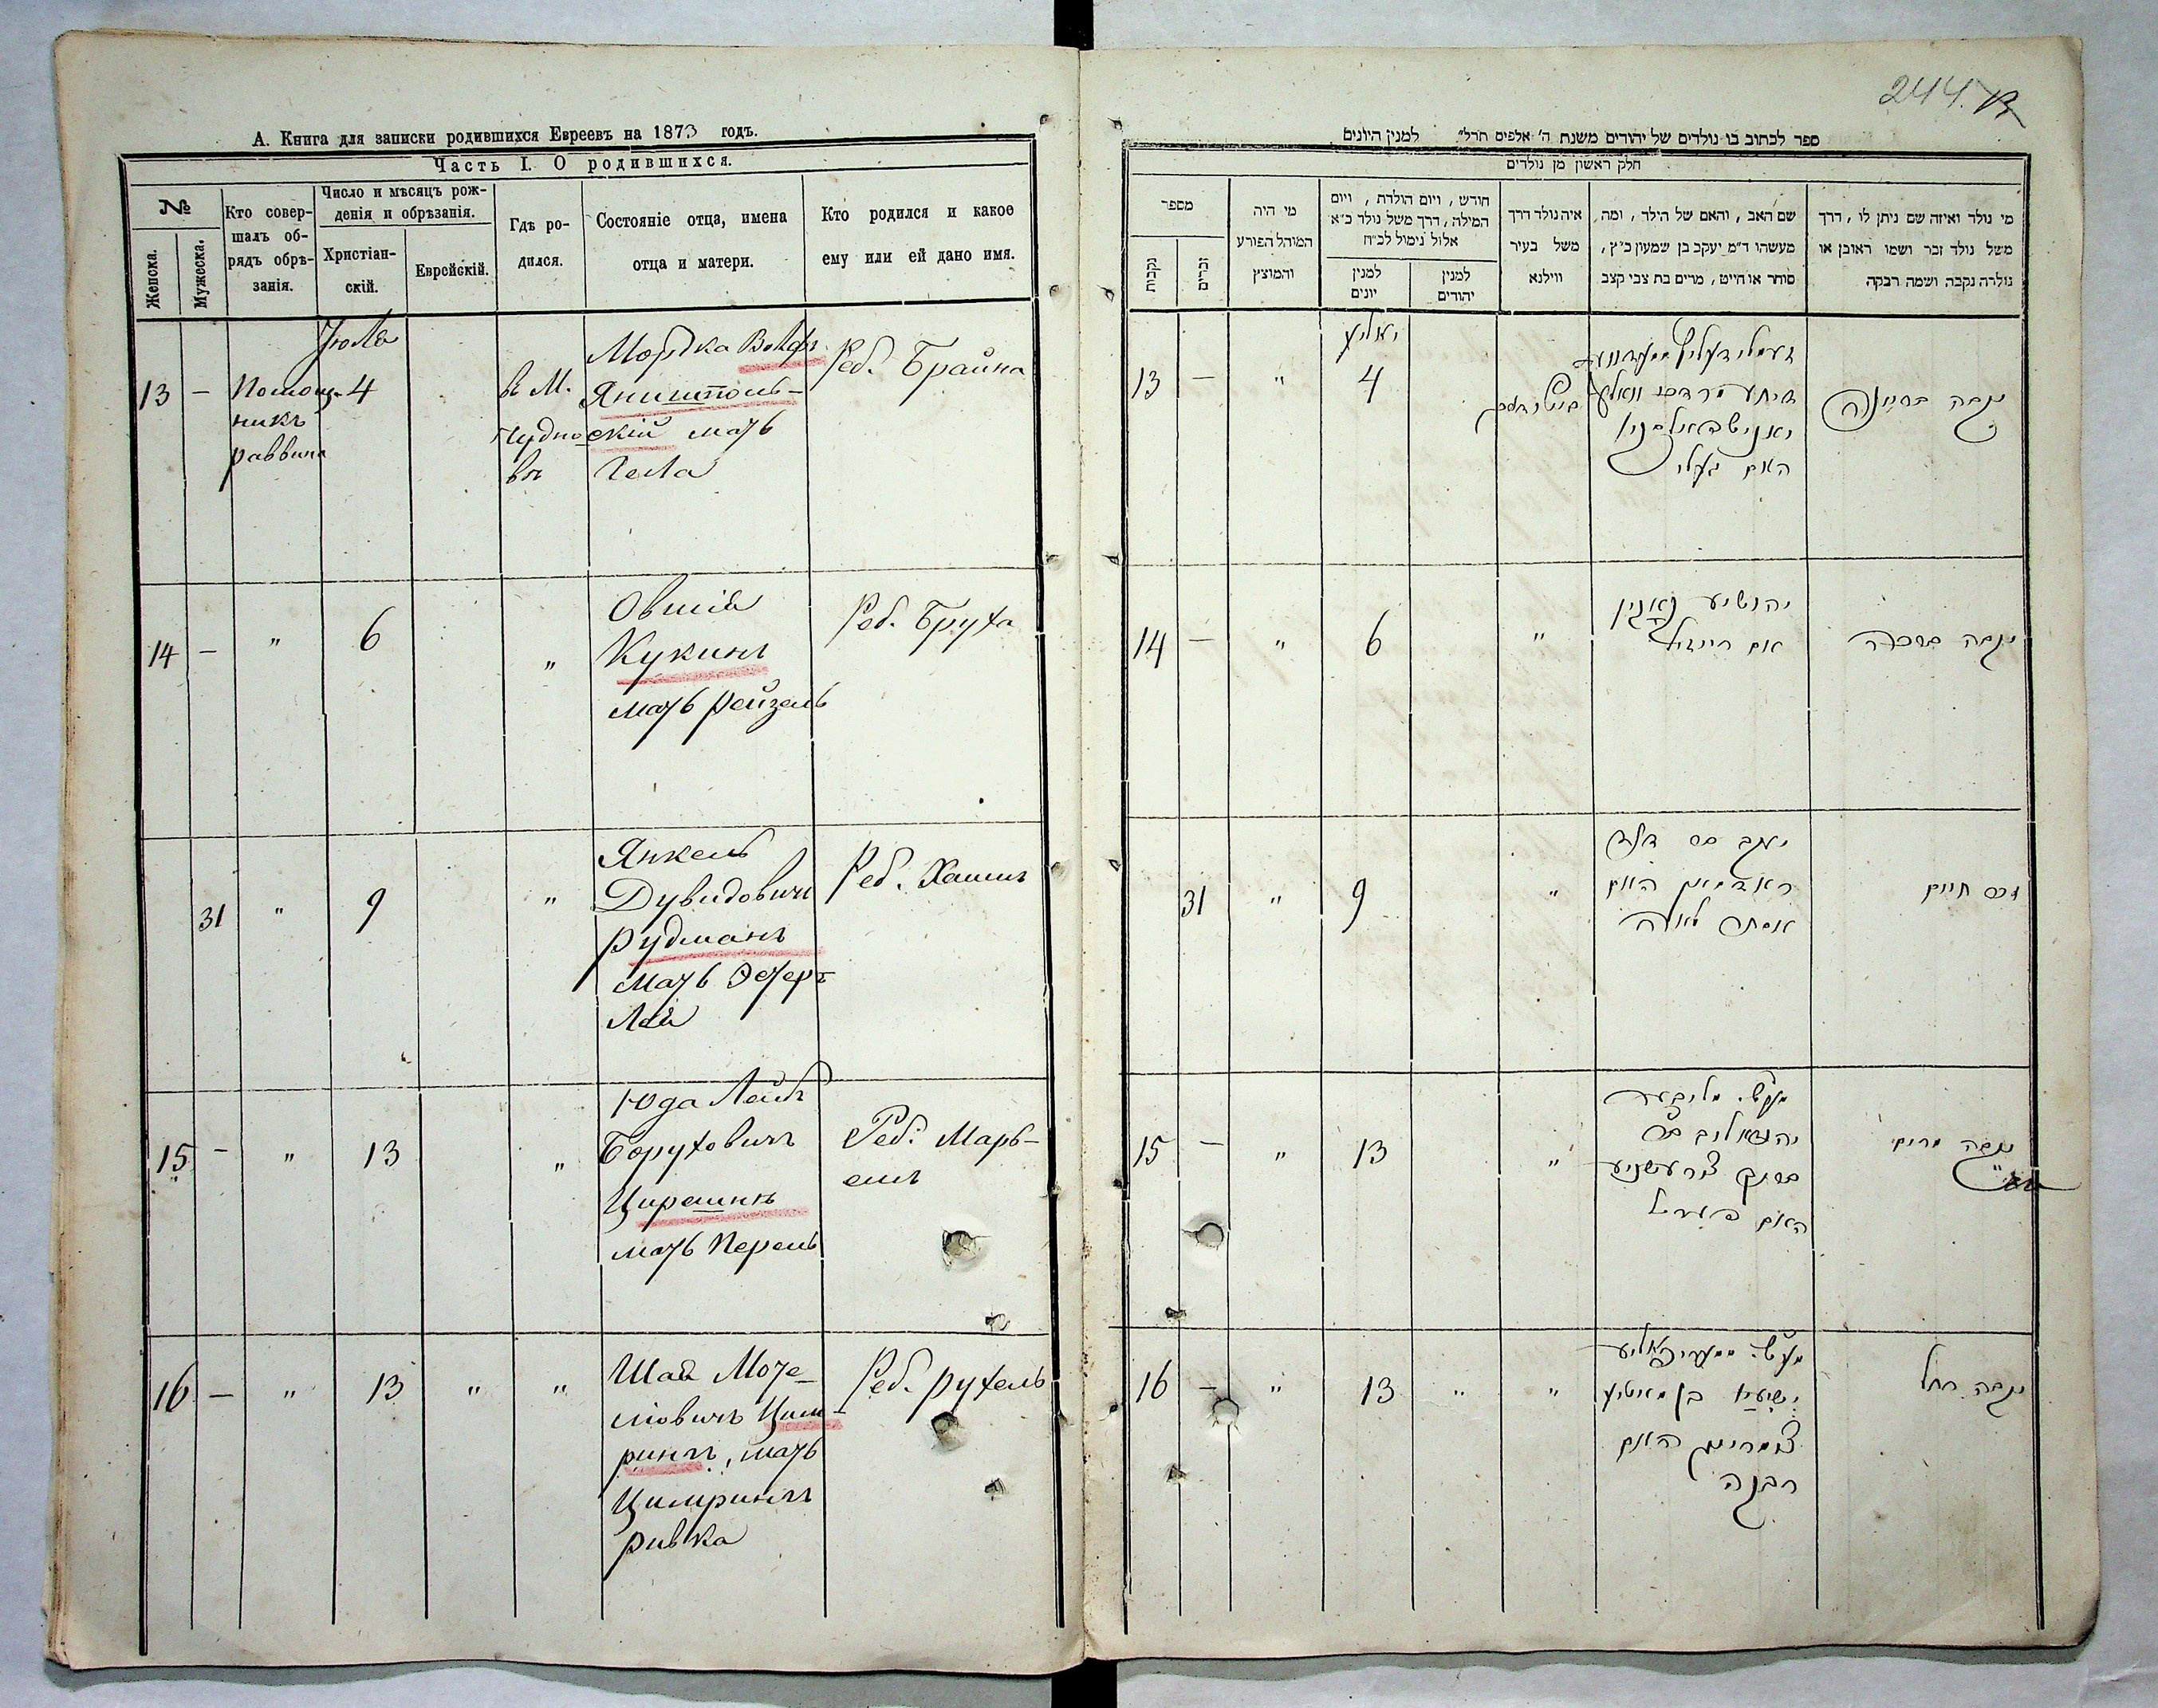 А. Книга для записки родившихся Евреевъ на 1873 годъ.
Часть I. О родившихся.
№
Женска.
Мужеска.
Кто совер-
шалъ об-
рядъ обрѣ-
занія.
Число и мѣсяцъ рож-
денія и обрѣзанія.
Христіан-
скій.
Еврейскій.
Гдѣ ро-
дился.
Состояніе отца, имена
отца и матери.
Кто родился и какое
ему или ей дано имя.
Июля
13 — Помощ-
никъ
раввина
4
в М.
Чудно
вѣ
Мордка Волфъ
Янишполь-
скій мать
Геля
Реб. Брайна
14 — " 6 "
Овшія
Кукинъ
мать Рейзель
Реб. Бруха
31 " 9 "
Янкель
Дувидовичъ
Рудманъ
мать Эстеръ
Лея
Реб. Хаимъ
15 — " 13 "
Юда Лейбъ
Боруховичъ
Цирешнъ
мать Перель
Реб. Марь-
емъ
16 — " 13 " "
Шая Моте-
ліовичъ Цим-
рингъ, мать
Цимрингъ
Ривка
Реб. Рухель
244.
ספר לכתוב בו נולדים של יהודים משנת ה' אלפים תרל" למנין היונים
חלק ראשון מן נולדים
מספר
נקבות
זכרים
מי היה
המוהל הפורע
והמוצץ
חודש, ויום הולדת, ויום
המילה, דרך משל נולד כ"א
אלול נימול לכ"ח
למנין
יונים
למנין
יהודים
איה נולד דרך
משל בעיר
ווילנא
שם האב, והאם של הילד, ומה
מעשהו ד"מ יעקב בן שמעון כ"ץ,
סוחר או חייט, מרים בת צבי קצב
מי נולד ואיזה שם ניתן לו, דרך
משל נולד זכר ושמו ראובן או
נולדה נקבה ושמה רבקה
יאליע
13 — " 4
האם געלי
נקבה בריינה
14 — " 6 "
יהושיע קאקין
אם רייזיל
נקבה ברכה
31 " 9 "
יעקב בר דוד
ראדמאן האם
אסתר לאה
זכר חיים
15 — " 13 "
האם פערל
נקבה מרים
16 — " 13 " "
ישעיא בן מאטיע
צומרינג האם
רבקה
נקבה רחל